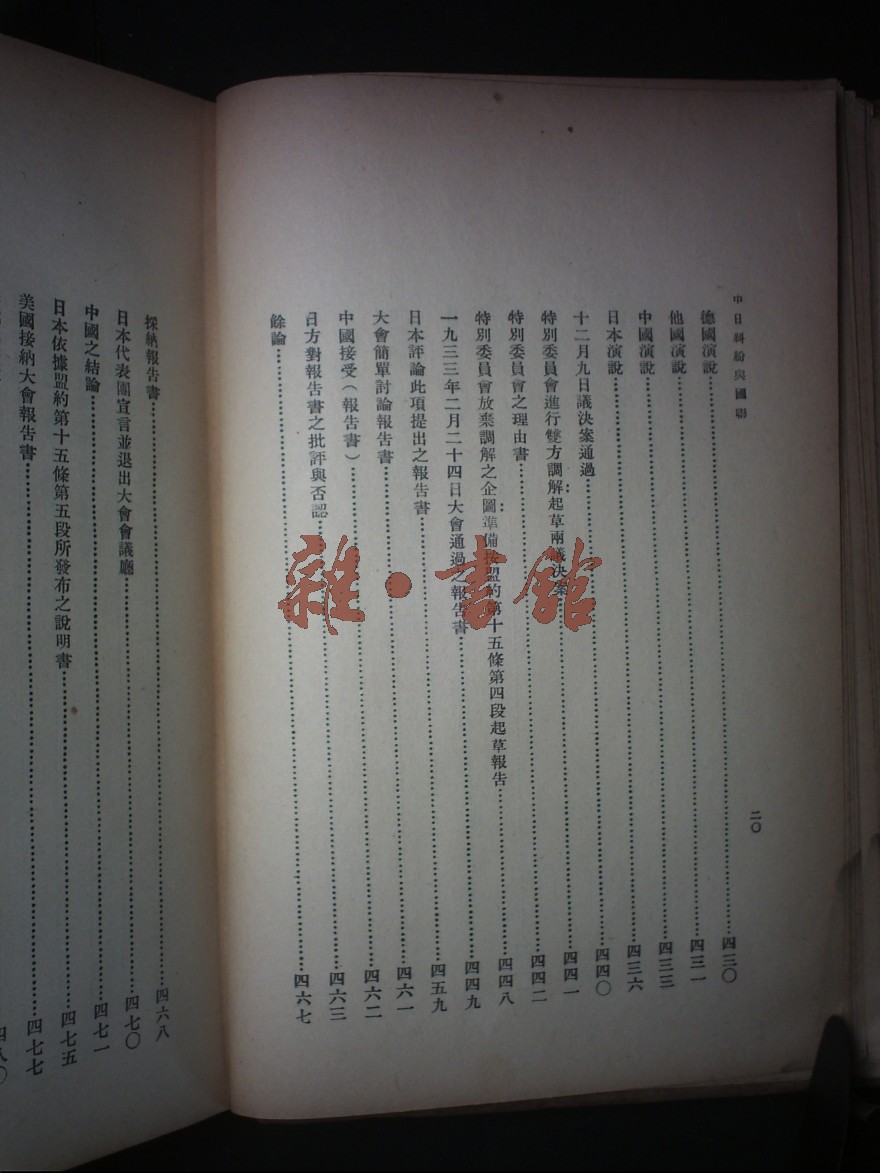 中日糾紛與國聯
二〇
德國演說……四三〇
他國演說……四三一
中國演說……四三三
日本演說……四三六
十二月九日議決案通過……四四〇
特別委員會進行雙方調解起草兩議決案……四四一
特別委員會之理由書……四四二
特別委員會放棄調解之企圖準備按盟約第十五條第四段起草報告……四四八
一九三三年二月二十四日大會通過之報告書……四四九
日本評論此項提出之報告書……四五九
大會簡單討論報告書……四六一
中國接受(報告書)……四六二
日方對報告書之批評與否認……四六三
餘論……四六七
採納報告書……四六八
日本代表團宣言並退出大會會議廳……四七〇
中國之結論……四七一
日本依據盟約第十五條第五段所發布之說明書……四七五
美國接納大會報告書……四七七
四八〇
雜·書館